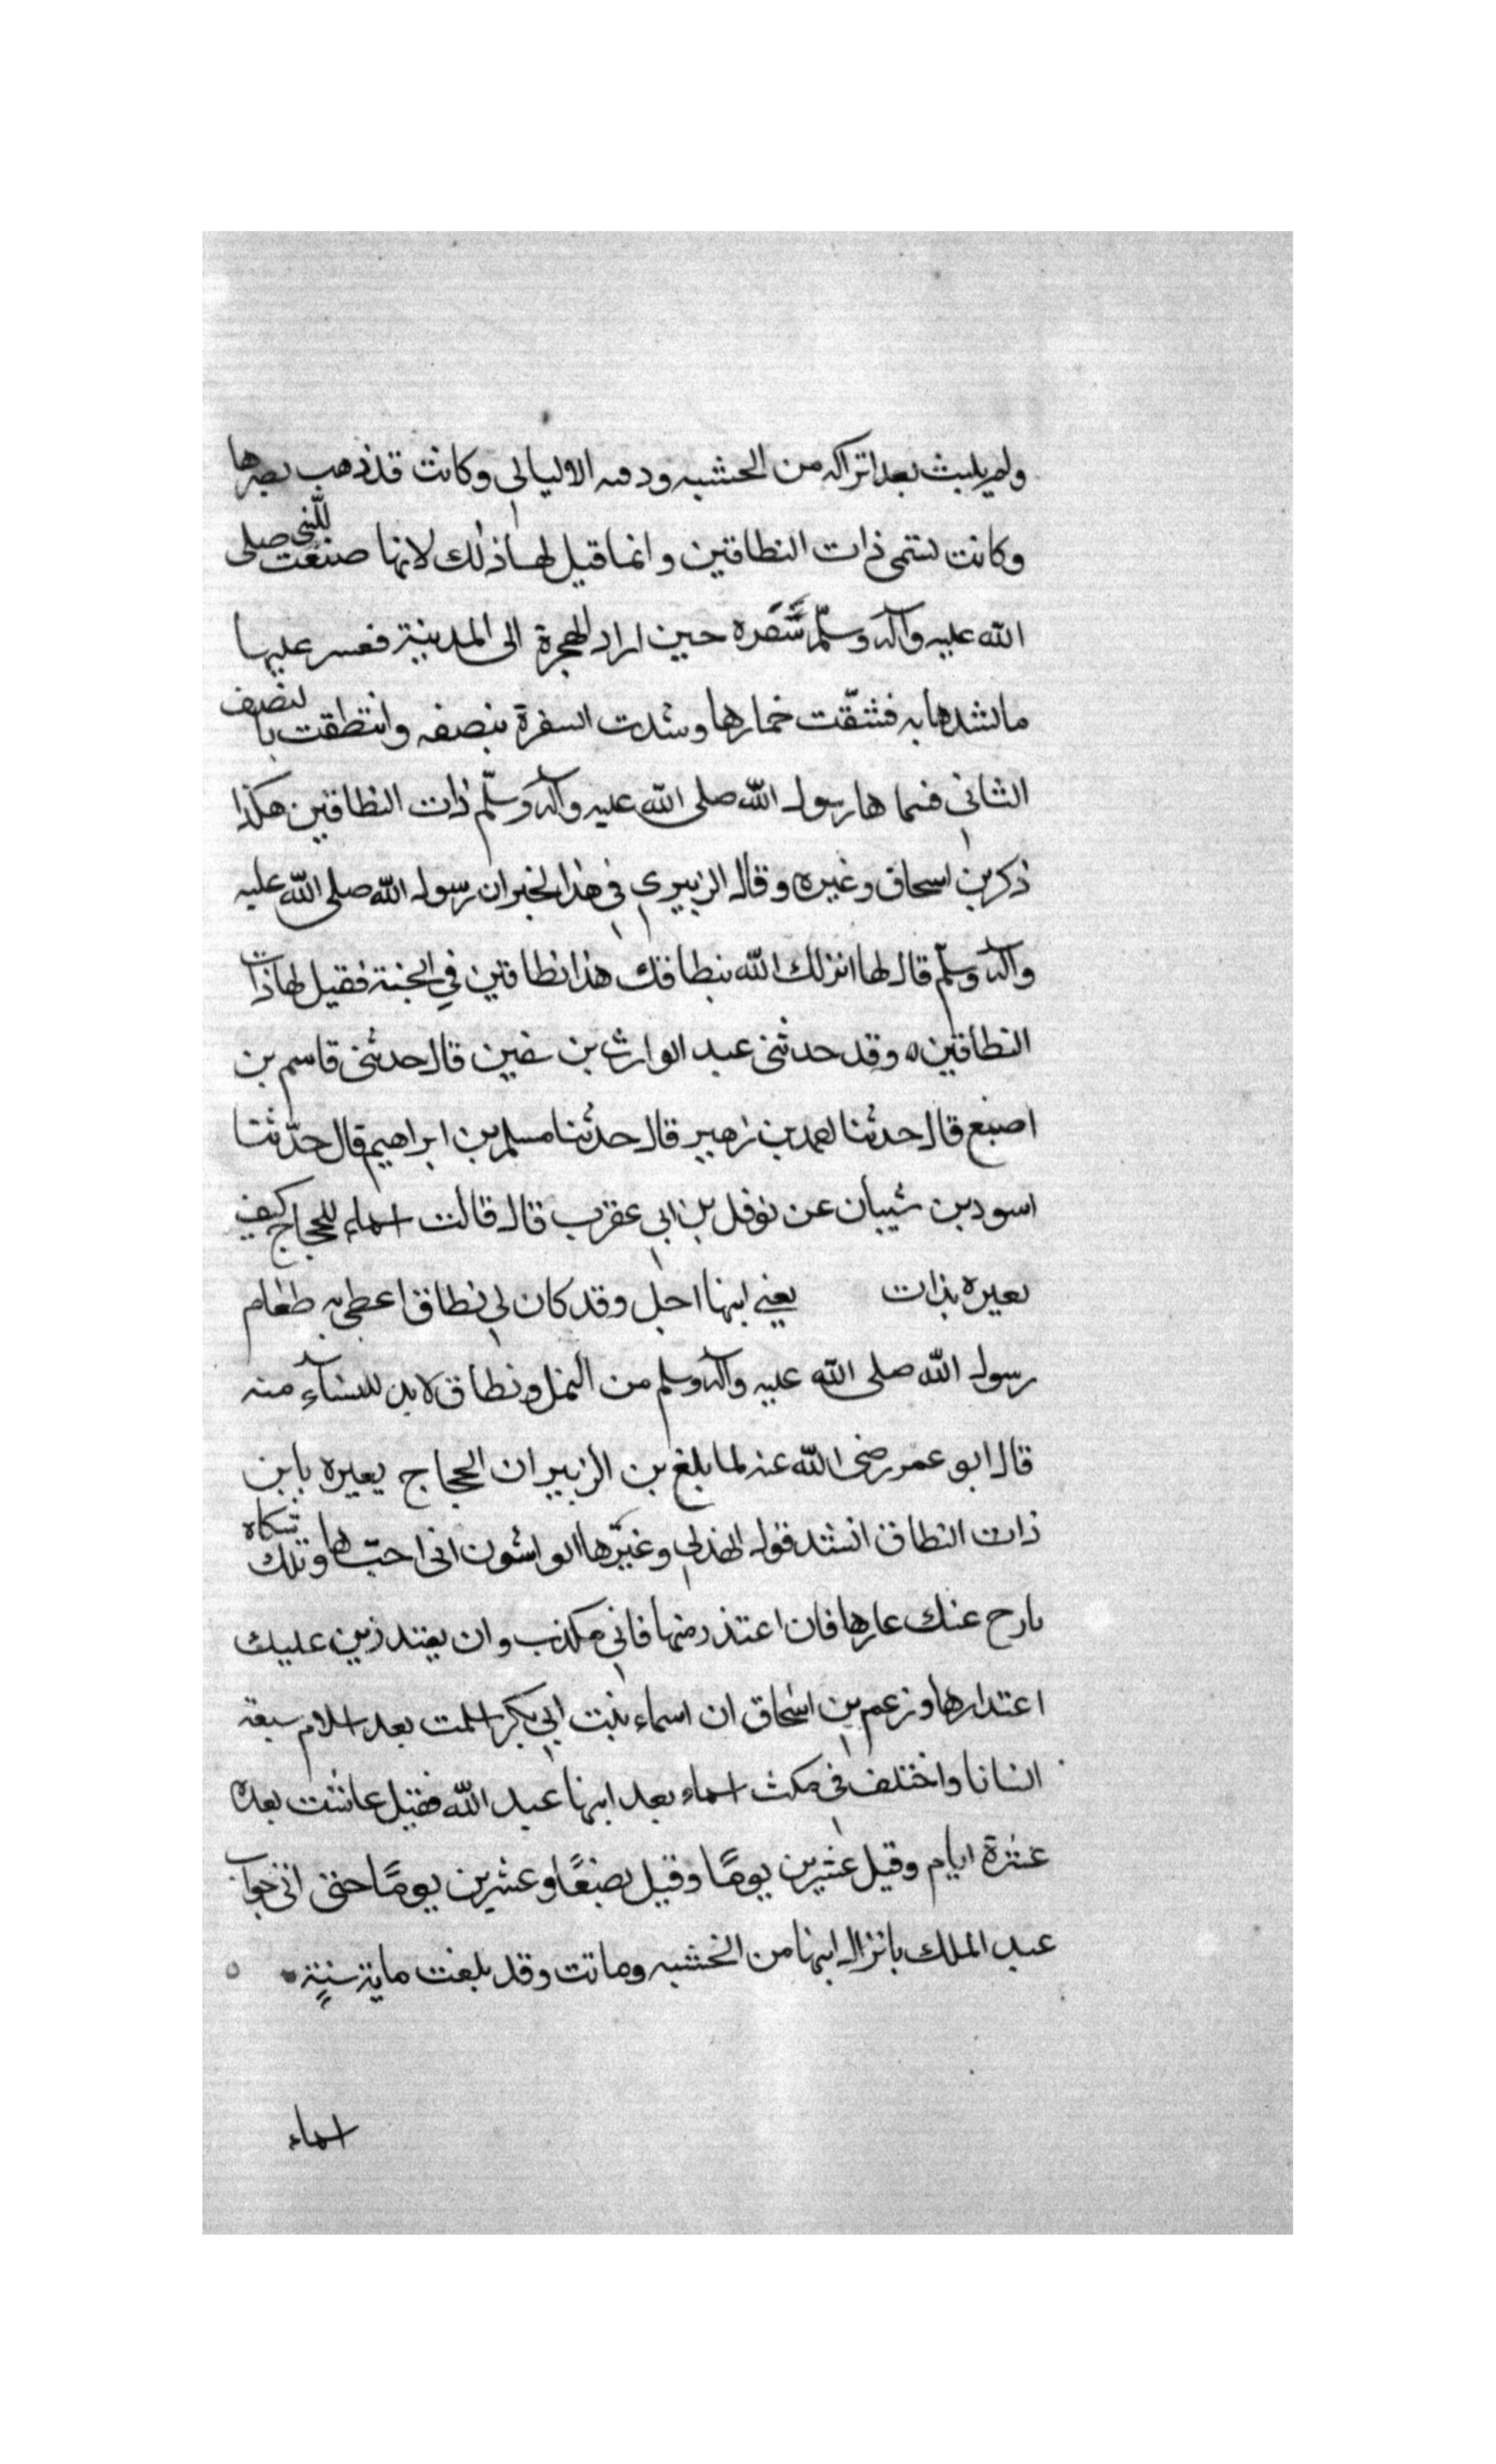 ولم يلبث بعد انزاله من الخشبه ودفنه الا ليالي وكانت قد ذهب بصرها
وكانت تسمى ذات النطاقين وانما قيل لها ذلك لانها صنعت للنبي صلى
الله عليه وآله وسلّم سُفره حين اراد الهجرة الى المدينة فعسر عليها
ما تشدها به فشقّت خمارها وشدت السفرة بنصفه وانتطقت بالنصف
الثاني فسماها رسول الله صلى الله عليه وآله وسلّم ذات النطاقين هكذا
ذكر بن اسحاق وغيره وقال الزبيري في هذا الخبر ان رسول الله صلى الله عليه
وآله وسلّم قال لها انزلك الله بنطاقك هذا نطاقين في الجنة فقيل لها ذات
النطاقين ه وقد حدثني عبد الوارث بن سفين قال حدثني قاسم بن
اصبغ قال حدثنا احمد بن زهير قال حدثنا مسلم بن ابراهيم قال حدّثنا
اسود بن شيبان عن نوفل بن ابي عقرب قال قالت اسماء للحجاج كيف
يعيره بذات يعني ابنها اجل وقد كان لي نطاق اعطى به طعام
رسول الله صلى الله عليه وآله وسلم من النمل ونطاق لابد للنساء منه
قال ابو عمر رضي الله عنه لما بلغ بن الزبير ان الحجاج يعيره بابن
ذات النطاق انشد قول الهذلي وغيّرها الواشون اني احبّها وتلك شكاه
نارح عنك عارها فان اعتذر منها فاني مكذب وان يعتذر من عليك
اعتدارها وزعم بن اسحاق ان اسماء بنت ابي بكر اسلمت بعد اسلام سبعة
انسانا واختلف في مكث اسماء بعد ابنها عبد الله فقيل عاشت بعده
عشرة ايام وقيل عشرين يومًا وقيل بضعًا وعشرين يومًا حتى اتى جواب
عبد الملك بانزال ابنها من الخشبه وماتت وقد بلغت ماية سنةٍ
اسماء